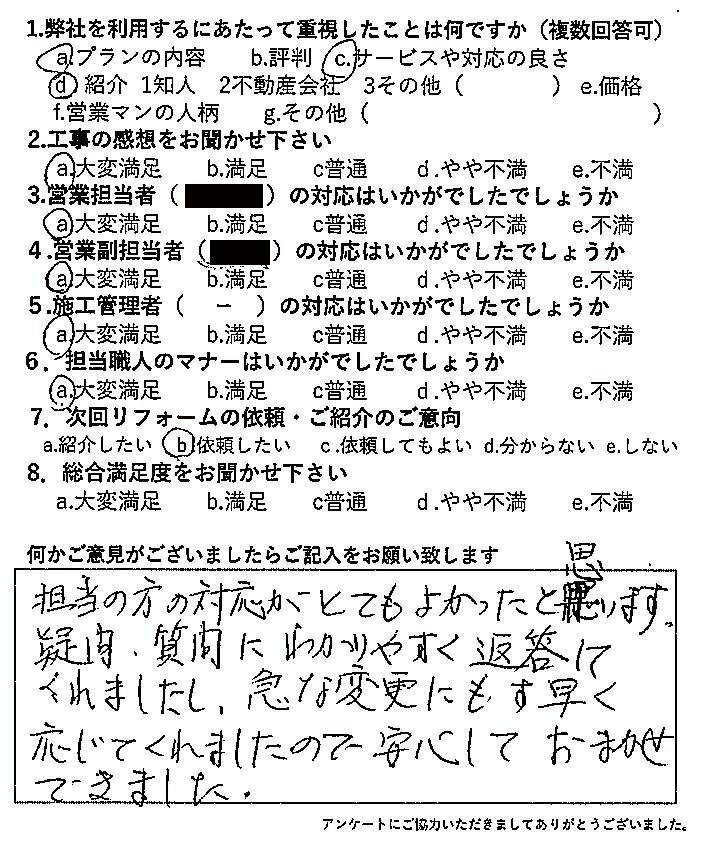 1.弊社を利用するにあたって重視したことは何ですか（複数回答可）
a.プランの内容 b.評判 c.サービスや対応の良さ
d 紹介 1知人 2不動産会社 3その他（ ）e.価格
f.営業マンの人柄 g.その他（ ）
2.工事の感想をお聞かせ下さい
a.大変満足 b.満足 c普通 d.やや不満 e.不満
3.営業担当者（ ）の対応はいかがでしたでしょうか
a.大変満足 b.満足 c普通 d.やや不満 e.不満
4.営業副担当者（ ）の対応はいかがでしたでしょうか
a.大変満足 b.満足 c普通 d.やや不満 e.不満
5.施工管理者（ ー ）の対応はいかがでしたでしょうか
a.大変満足 b.満足 c普通 d.やや不満 e.不満
6．担当職人のマナーはいかがでしたでしょうか
a.大変満足 b.満足 c普通 d.やや不満 e.不満
7．次回リフォームの依頼・ご紹介のご意向
a.紹介したい b依頼したい c.依頼してもよい d.分からない e.しない
8．総合満足度をお聞かせ下さい
a.大変満足 b.満足 c普通 d.やや不満 e.不満
何かご意見がございましたらご記入をお願い致します
担当の方の対応がとてもよかったと思います。
疑問、質問にわかりやすく返答して
くれましたし、急な変更にもす早く
応じてくれましたので安心しておまかせ
できました．
アンケートにご協力いただきましてありがとうございました。